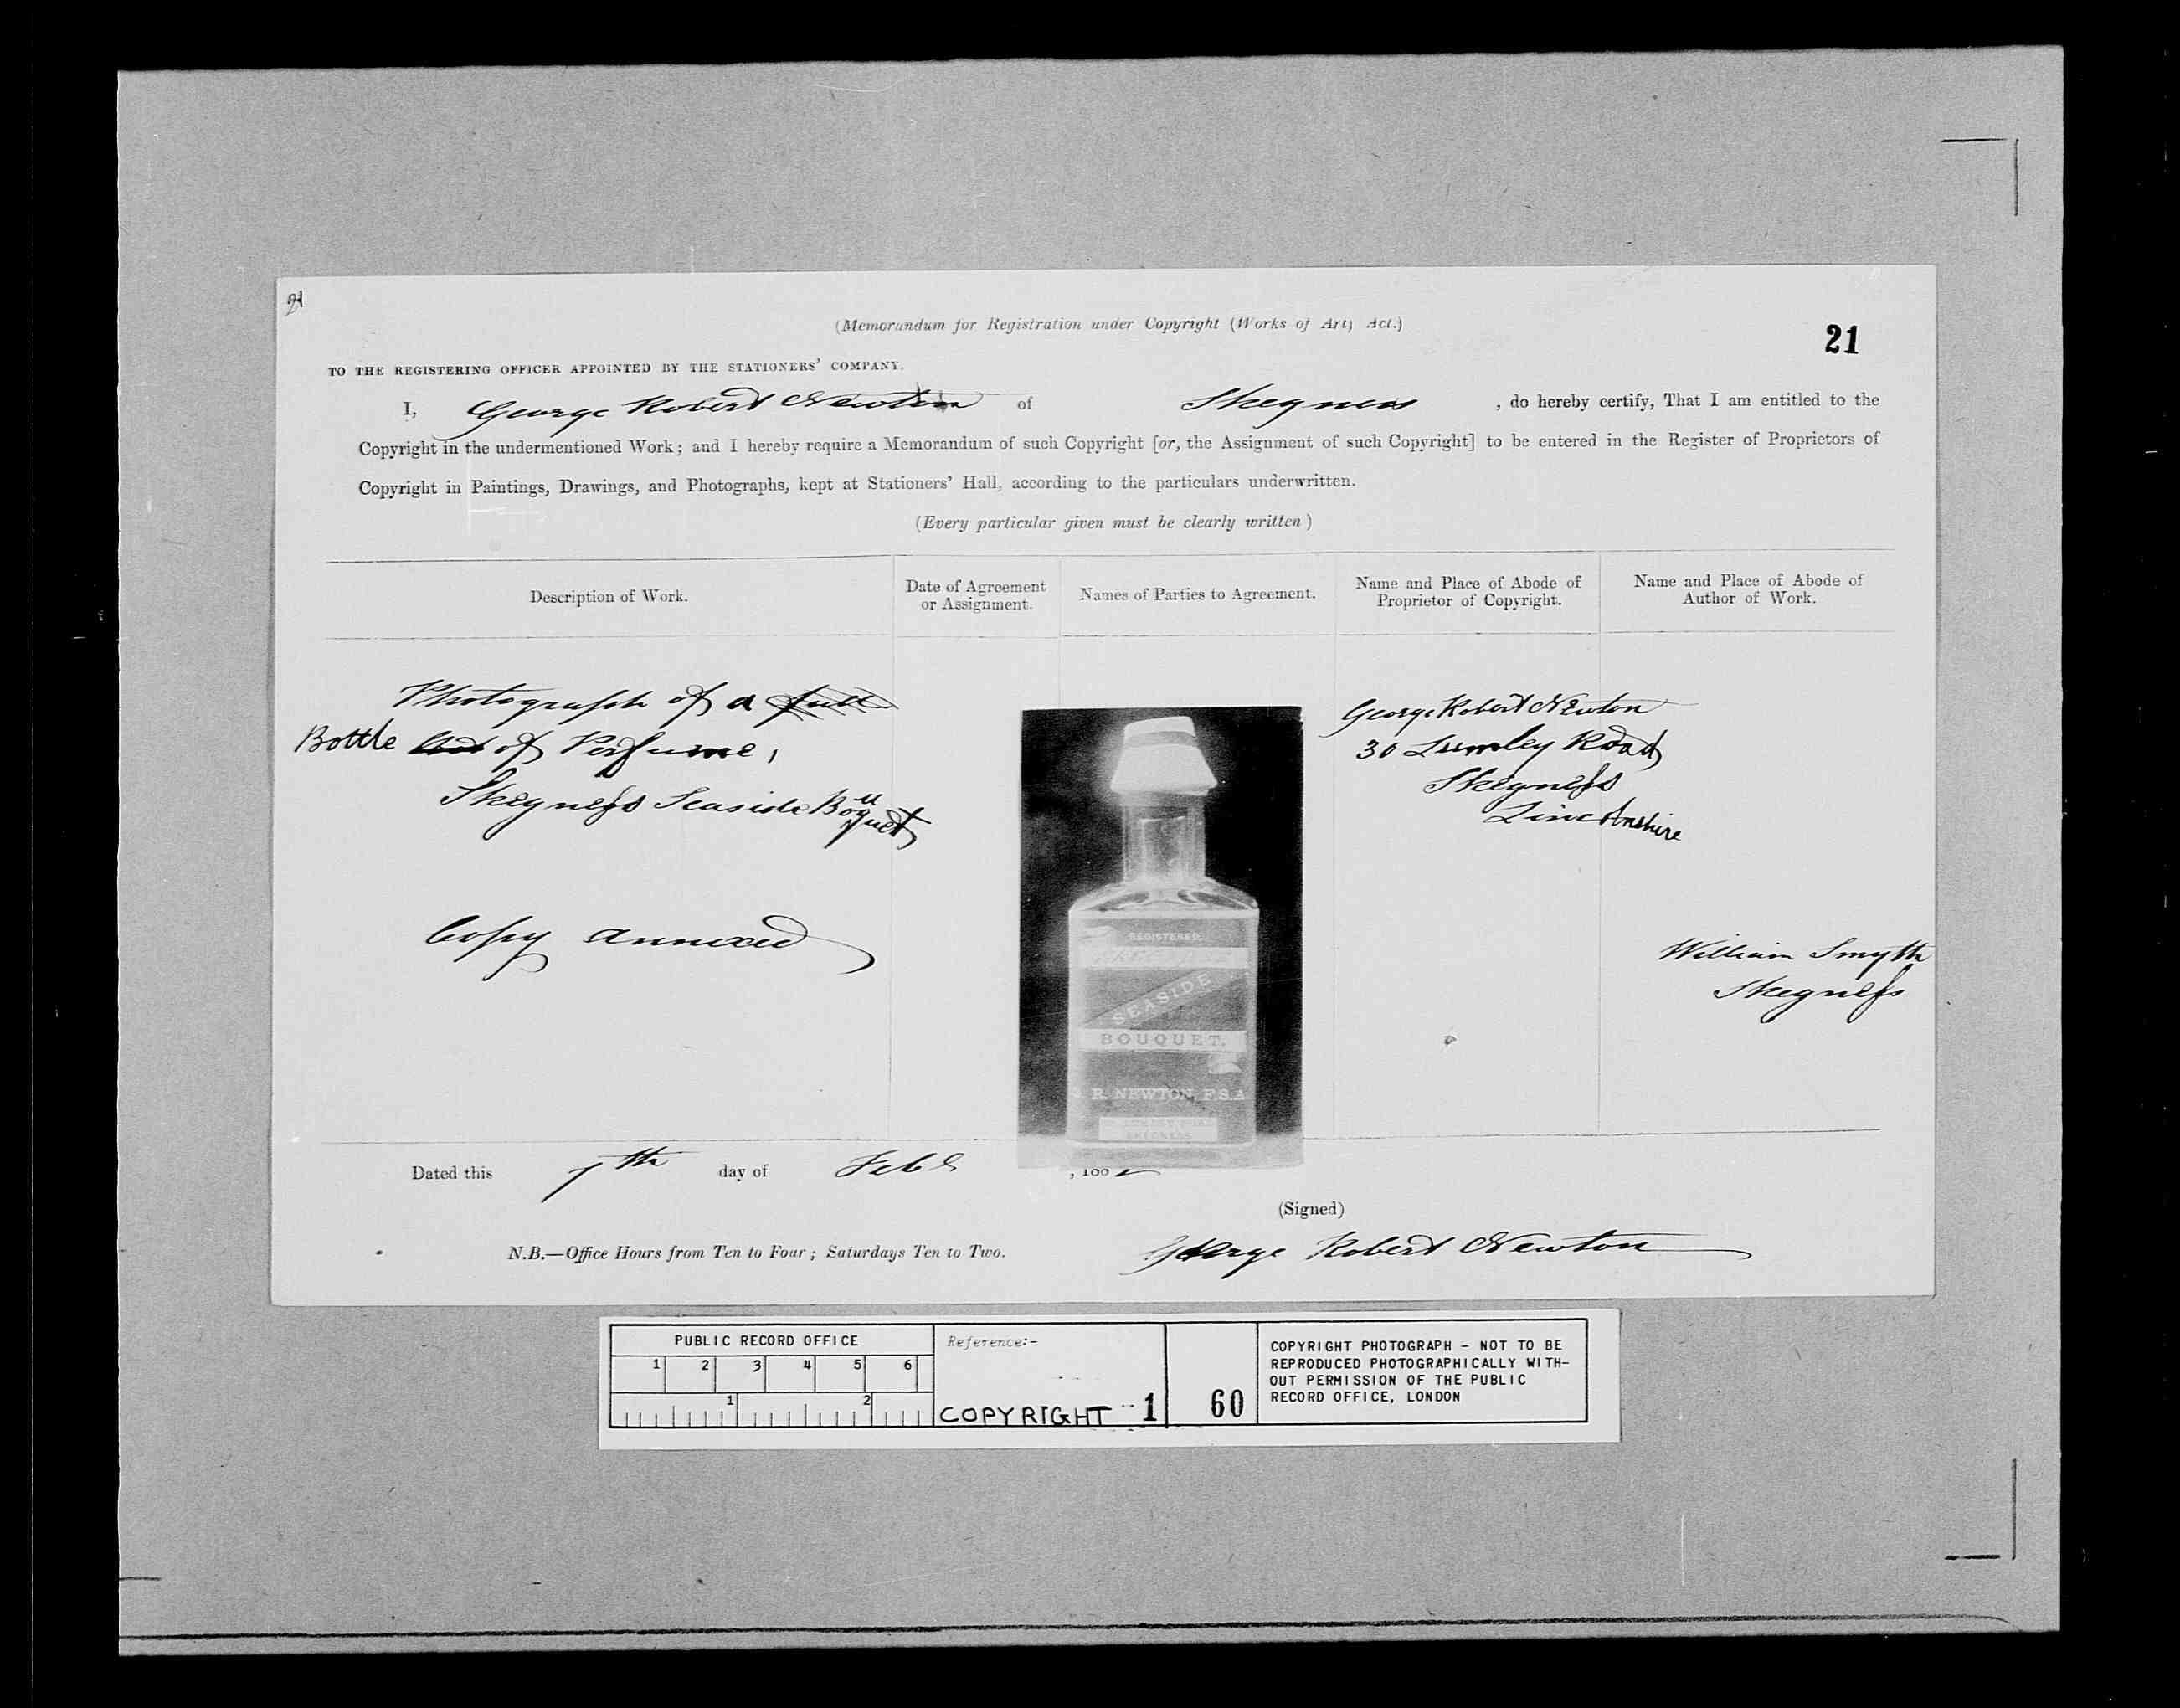 21
(Memorandum for Registration under Copyright (Works of Art) Act.)
TO THE REGISTERING OFFICER APPOINTED BY THE STATIONERS' COMPANY.
I, George Robert Newton of Skegness, do hereby certify, That I am entitled to the
Copyright in the undermentioned Work; and I hereby require a Memorandum of such Copyright [or, the Assignment of such Copyright] to be entered in the Register of Proprietors of
Copyright in Paintings, Drawings, and Photographs, kept at Stationers' Hall, according to the particulars underwritten.
(Every particular given must be clearly written)
Description of Work.
Date of Agreement
or Assignment.
Names of Parties to Agreement.
Name and Place of Abode of
Proprietor of Copyright.
Name and Place of Abode of
Author of Work.
Photograph of a
Bottle of Perfume,
Skegness Seaside Bouquet
Copy annexed
REGISTERED.
SEASIDE
BOUQUET.
R. NEWTON, F.S.A
SKEGNESS
George Robert Newton
30 Lumley Road
Skegness
Lincolnshire
William Smyth
Skegness
Dated this 7th day of Feb, 1882
(Signed)
George Robert Newton
N.B.—Office Hours from Ten to Four; Saturdays Ten to Two.
PUBLIC RECORD OFFICE
1 2 3 4 5 6
1 2
Reference:-
COPYRIGHT 1
60
COPYRIGHT PHOTOGRAPH - NOT TO BE
REPRODUCED PHOTOGRAPHICALLY WITH-
OUT PERMISSION OF THE PUBLIC
RECORD OFFICE, LONDON